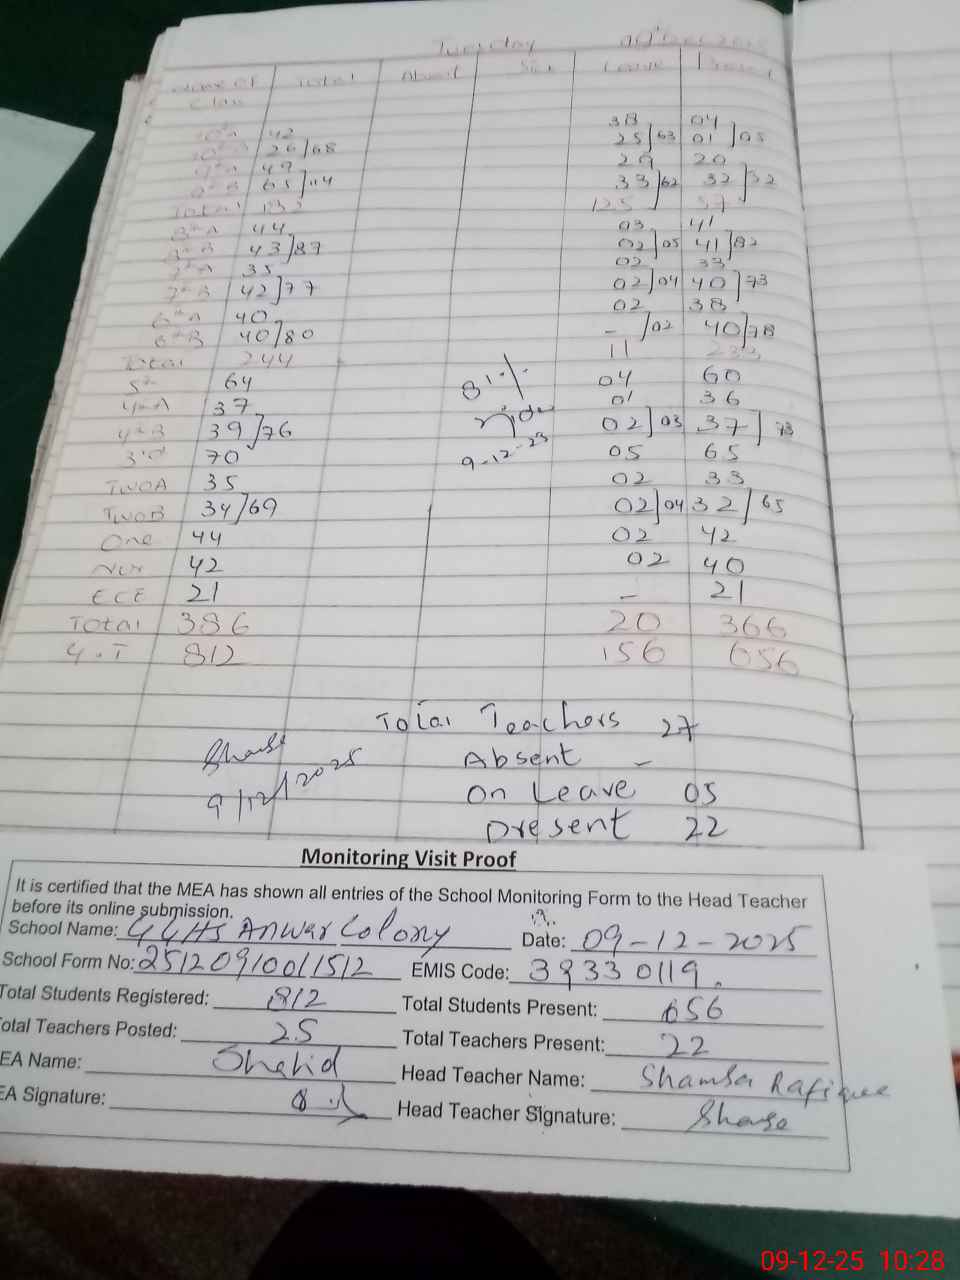 Tuesday 09 Dec 2025
Name of Total Absent Sick Leave Present
Class
10th A 42 38 04
26/68 25/63 01/05
9th A 49 29 20
9th B 65/114 33/62 32/52
Total 182 125 57
8th A 44 03 41
8th B 43/87 02/05 41/82
7th A 35 02 33
7th B 42/77 02/04 40/73
6th A 40 02 38
6th B 40/80 - /02 40/78
Total 244 11 233
5th 64 04 60
4th A 37 01 36
4th B 39/76 02/03 37/73
3rd 70 05 65
Two A 35 02 33
Two B 34/69 02/04 32/65
One 44 02 42
Nur 42 02 40
ECE 21 - 21
Total 386 20 366
G.T 812 156 656
81%
9-12-25
Total Teachers 27
Absent -
On Leave 05
Present 22
9/12/2025
Monitoring Visit Proof
It is certified that the MEA has shown all entries of the School Monitoring Form to the Head Teacher
before its online submission.
School Name: GGHS Anwar Colony Date: 09-12-2025
School Form No: 25120910011512 EMIS Code: 39330119.
Total Students Registered: 812 Total Students Present: 656
otal Teachers Posted: 25 Total Teachers Present: 22
EA Name: Shahid Head Teacher Name: Shamsa Rafique
EA Signature: Head Teacher Signature:
09-12-25 10:28